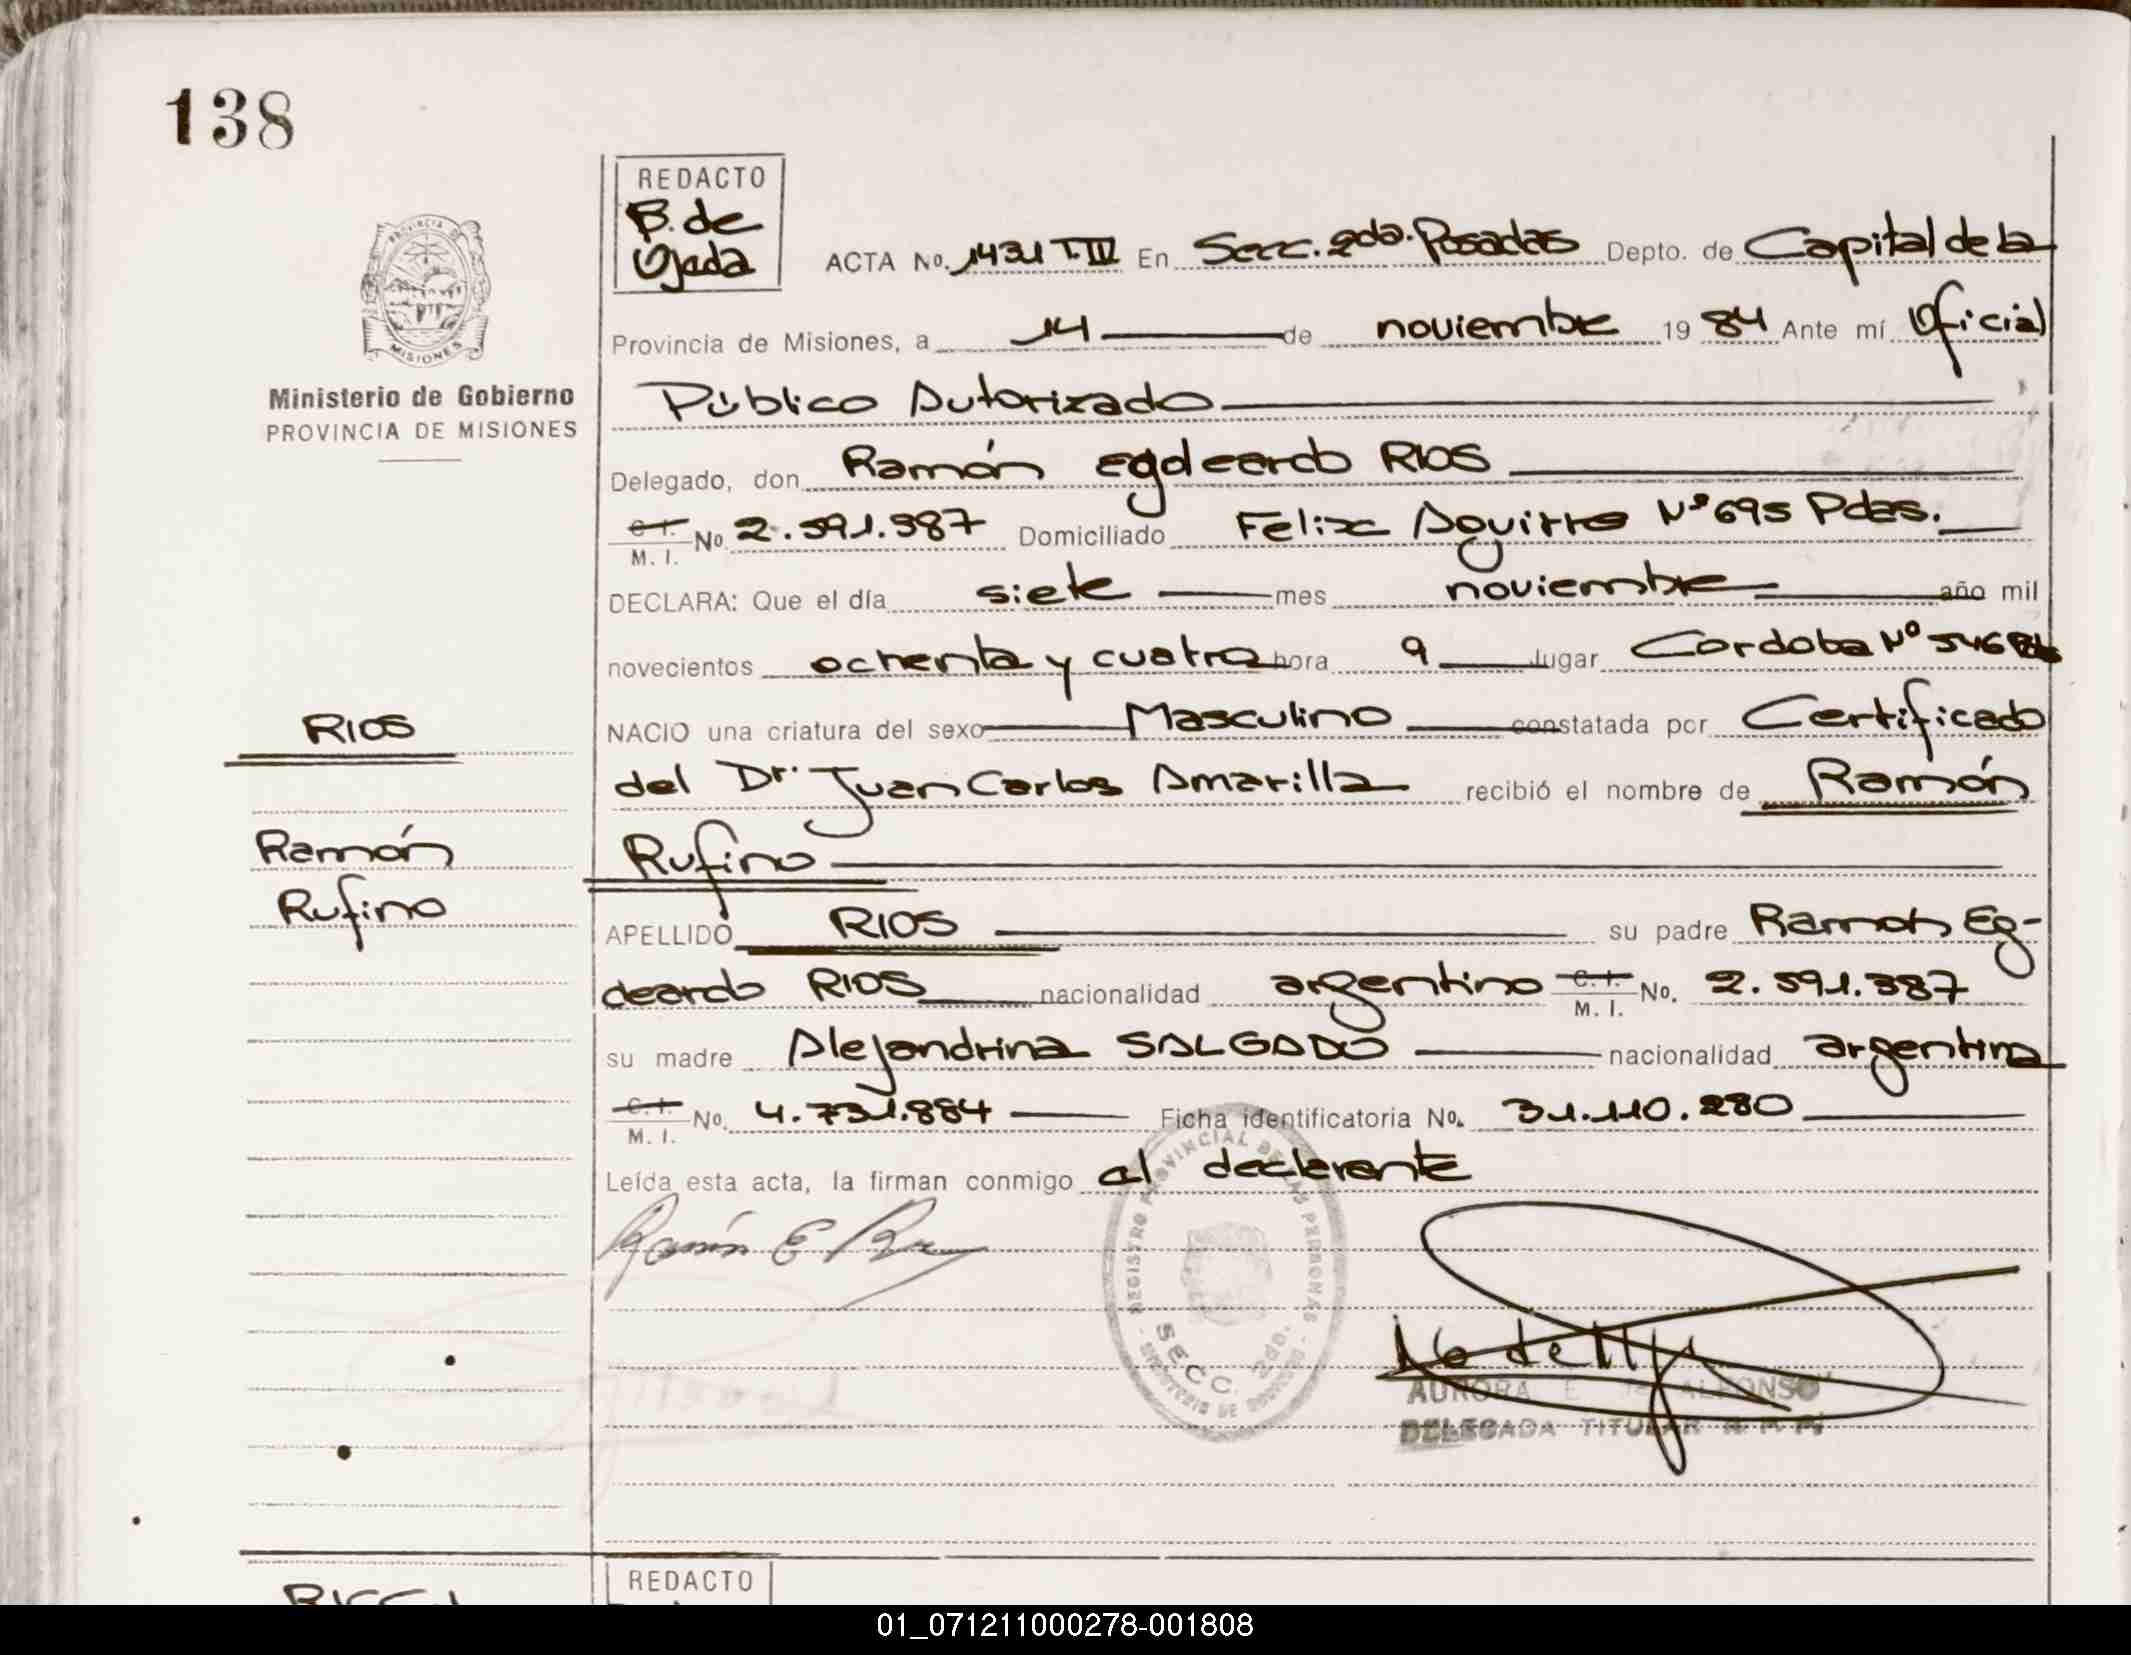 138
PROVINCIA DE
MISIONES
Ministerio de Gobierno
PROVINCIA DE MISIONES
REDACTO
B. de
Ojeda
ACTA No. 1431 T. IV En Secc. 2da. Posadas Depto. de Capital de la
Provincia de Misiones, a 14 de noviembre 1984 Ante mí Oficial
Público Autorizado
Delegado, don Ramón Egdeardo RIOS
C. I.
M. I. No 2.591.387 Domiciliado Felix Aguirre Nº 695 Pdas.
DECLARA: Que el día siete mes noviembre año mil
novecientos ochenta y cuatro hora 9 lugar Cordoba Nº 546 Pdas
NACIO una criatura del sexo Masculino constatada por Certificado
del Dr. Juan Carlos Amarilla recibió el nombre de Ramón
Rufino
APELLIDO RIOS su padre Ramon Eg-
deardo RIOS nacionalidad argentino C. I.
M. I. No. 2.591.387
su madre Alejandrina SALGADO nacionalidad argentina
C. I.
M. I. No. 4.731.884 Ficha identificatoria No. 31.110.280
Leída esta acta, la firman conmigo el declarante
RIOS
Ramón
Rufino
Ramón E Rios
REGISTRO PROVINCIAL DE LAS PERSONAS
SECC. 2da.
MINISTERIO DE GOBIERNO
AURORA E. de ALFONSO
DELEGADA TITULAR R. P. P.
REDACTO
01_071211000278-001808